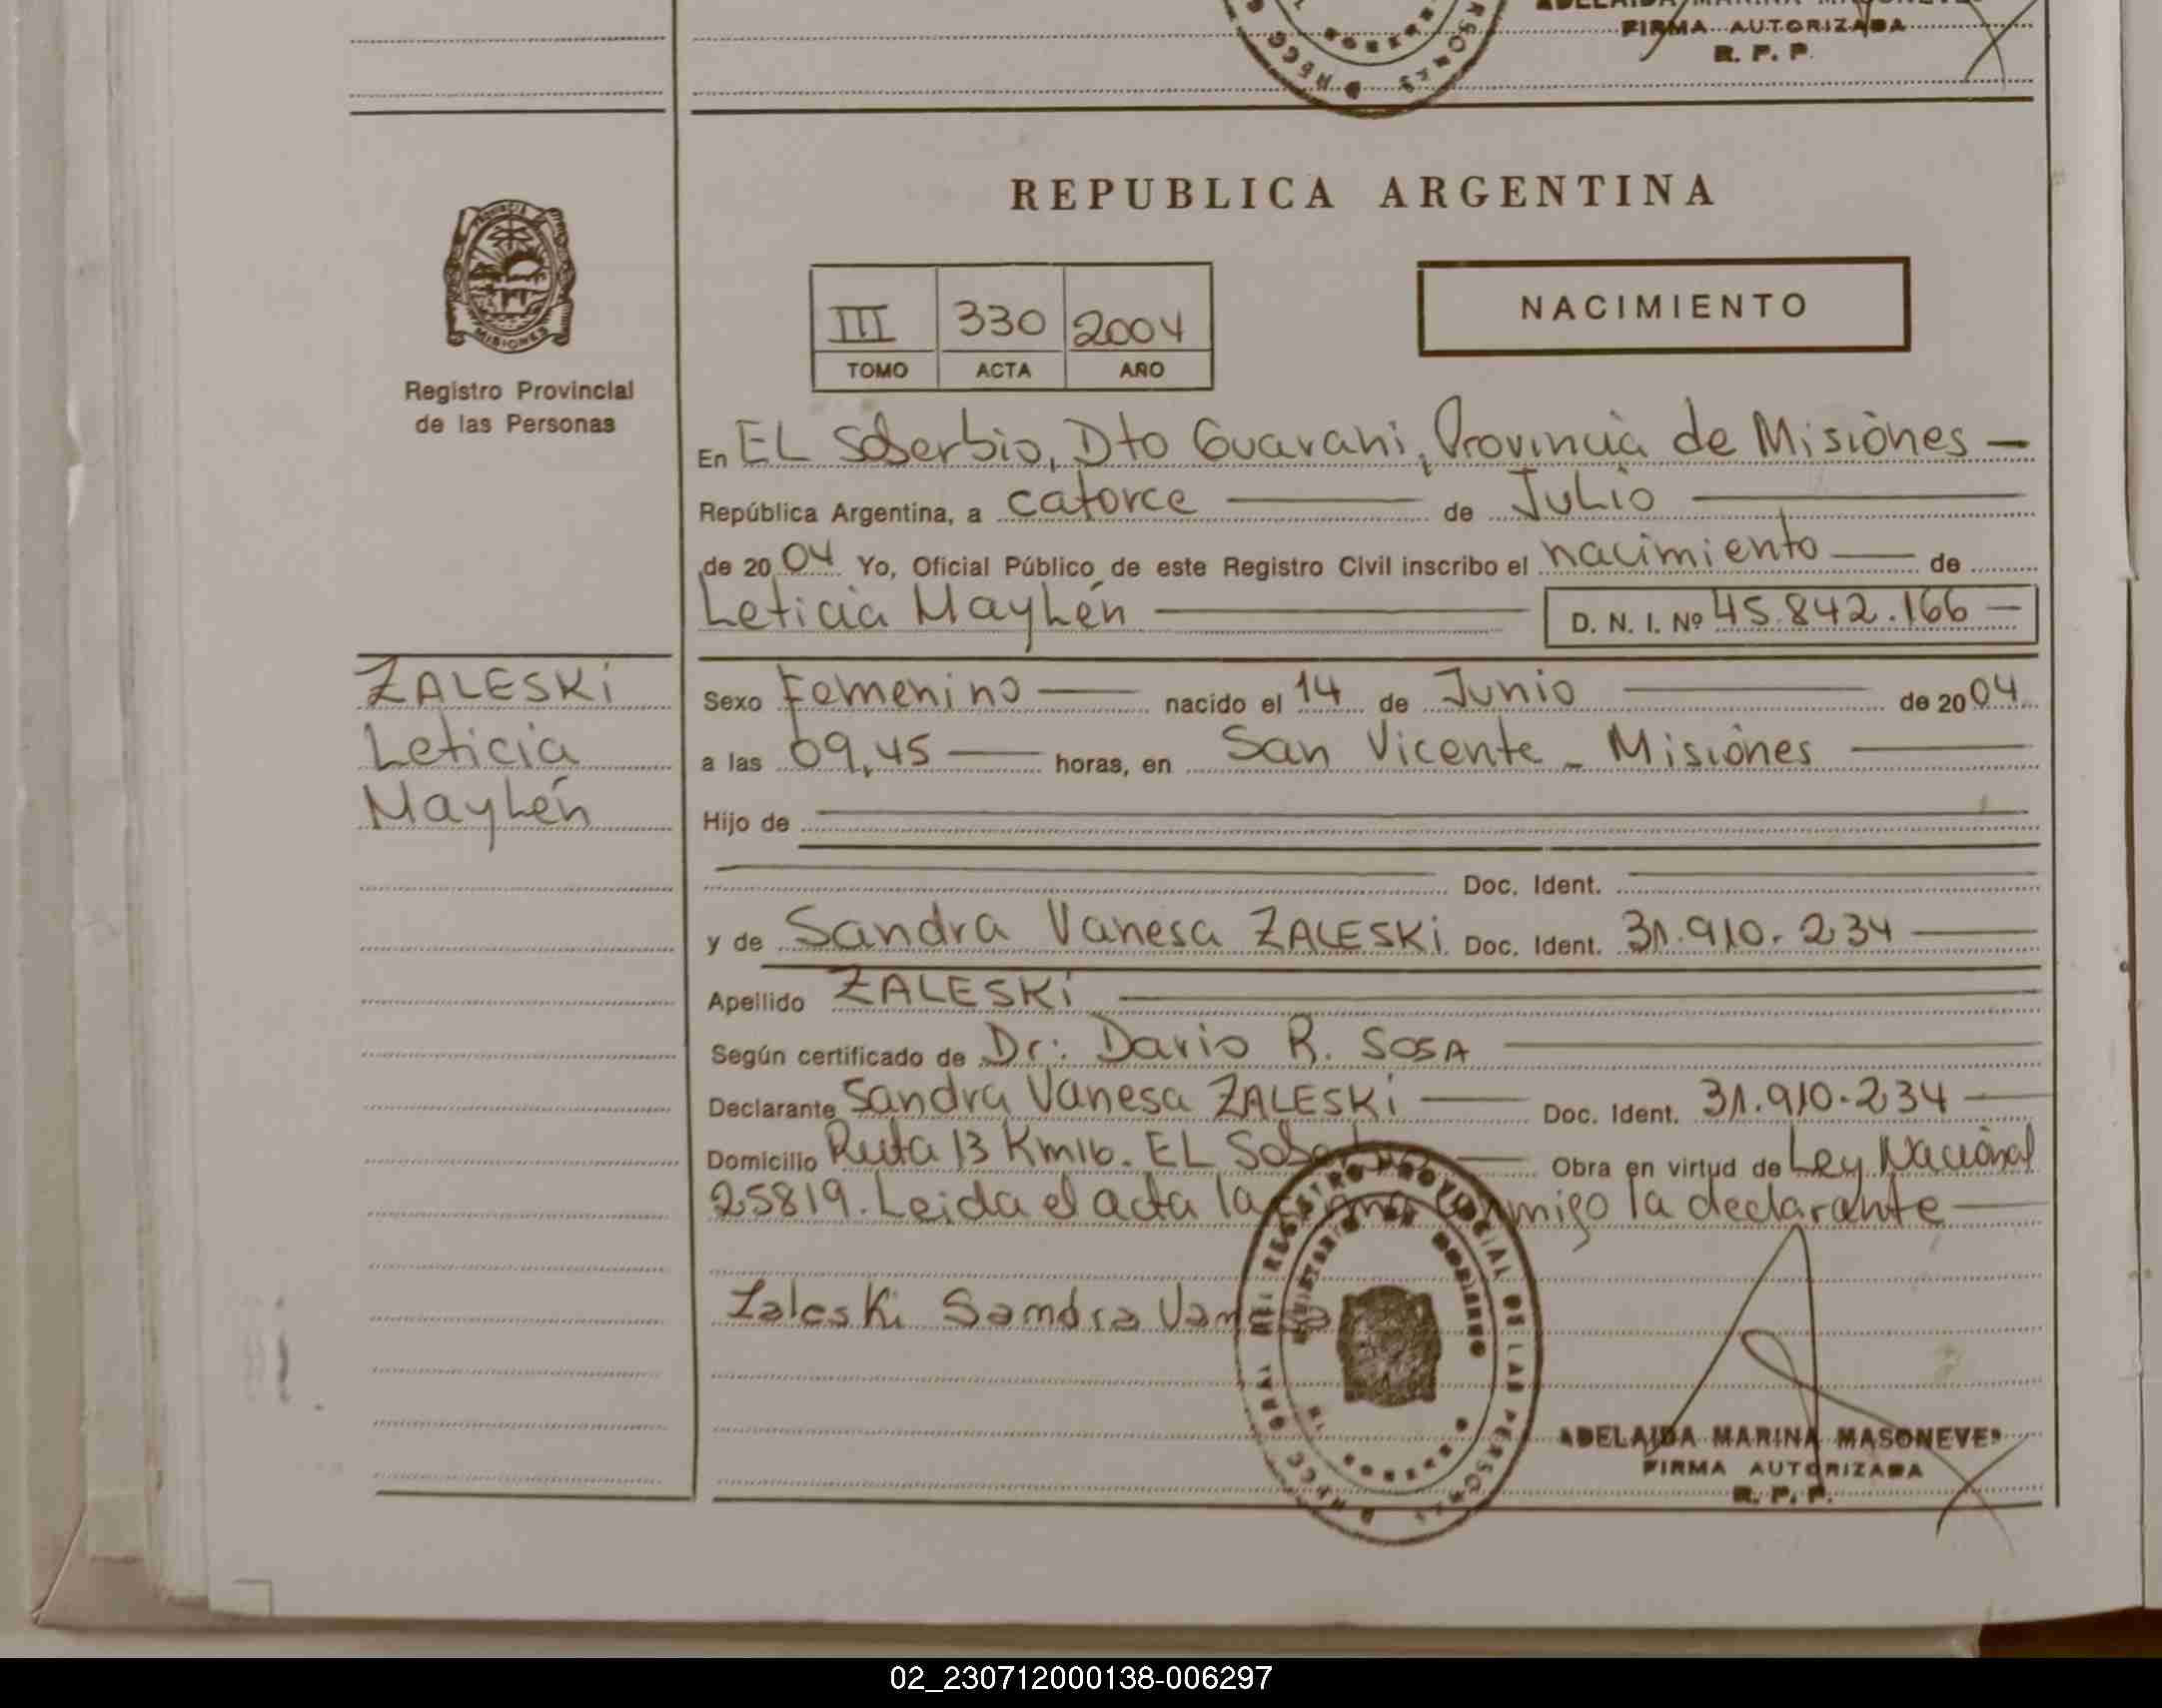 FIRMA AUTORIZADA
R. P. P.
REPUBLICA ARGENTINA
NACIMIENTO
III 330 2004
TOMO ACTA AÑO
PROVINCIA
MISIONES
Registro Provincial
de las Personas
En EL Soberbio, Dto Guarani, Provincia de Misiones —
República Argentina, a catorce — de Julio —
de 2004 Yo, Oficial Público de este Registro Civil inscribo el nacimiento — de
Leticia Maylén — D. N. I. Nº 45.842.166 —
ZALESKi
Leticia
Maylén
Sexo Femenino — nacido el 14 de Junio — de 2004
a las 09,45 — horas, en San Vicente - Misiones —
Hijo de —
— Doc. Ident. —
y de Sandra Vanesa ZALESKi Doc. Ident. 31.910.234 —
Apellido ZALESKi —
Según certificado de Dr: Dario R. SOSA —
Declarante Sandra Vanesa ZALESKi — Doc. Ident. 31.910.234 —
Domicilio Ruta 13 Km16. EL Soberbio — Obra en virtud de Ley Nacional
25819. Leida el acta la firma conmigo la declarante —
Zaleski Sandra Vanesa
REGISTRO PROVINCIAL DE LAS PERSONAS
ADELAIDA MARINA MASONEVE
FIRMA AUTORIZADA
R. P. P.
02_230712000138-006297